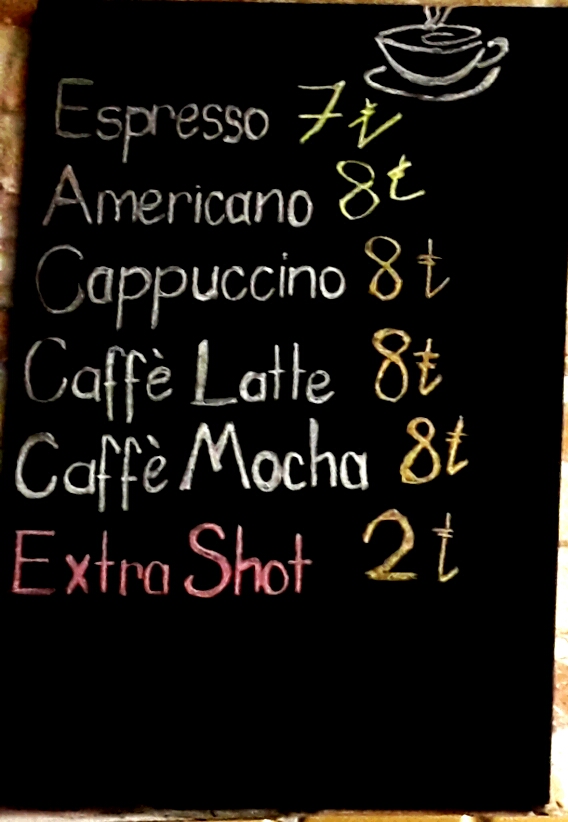 Espresso 7₺
Americano 8₺
Cappuccino 8₺
Caffè Latte 8₺
Caffè Mocha 8₺
Extra Shot 2₺